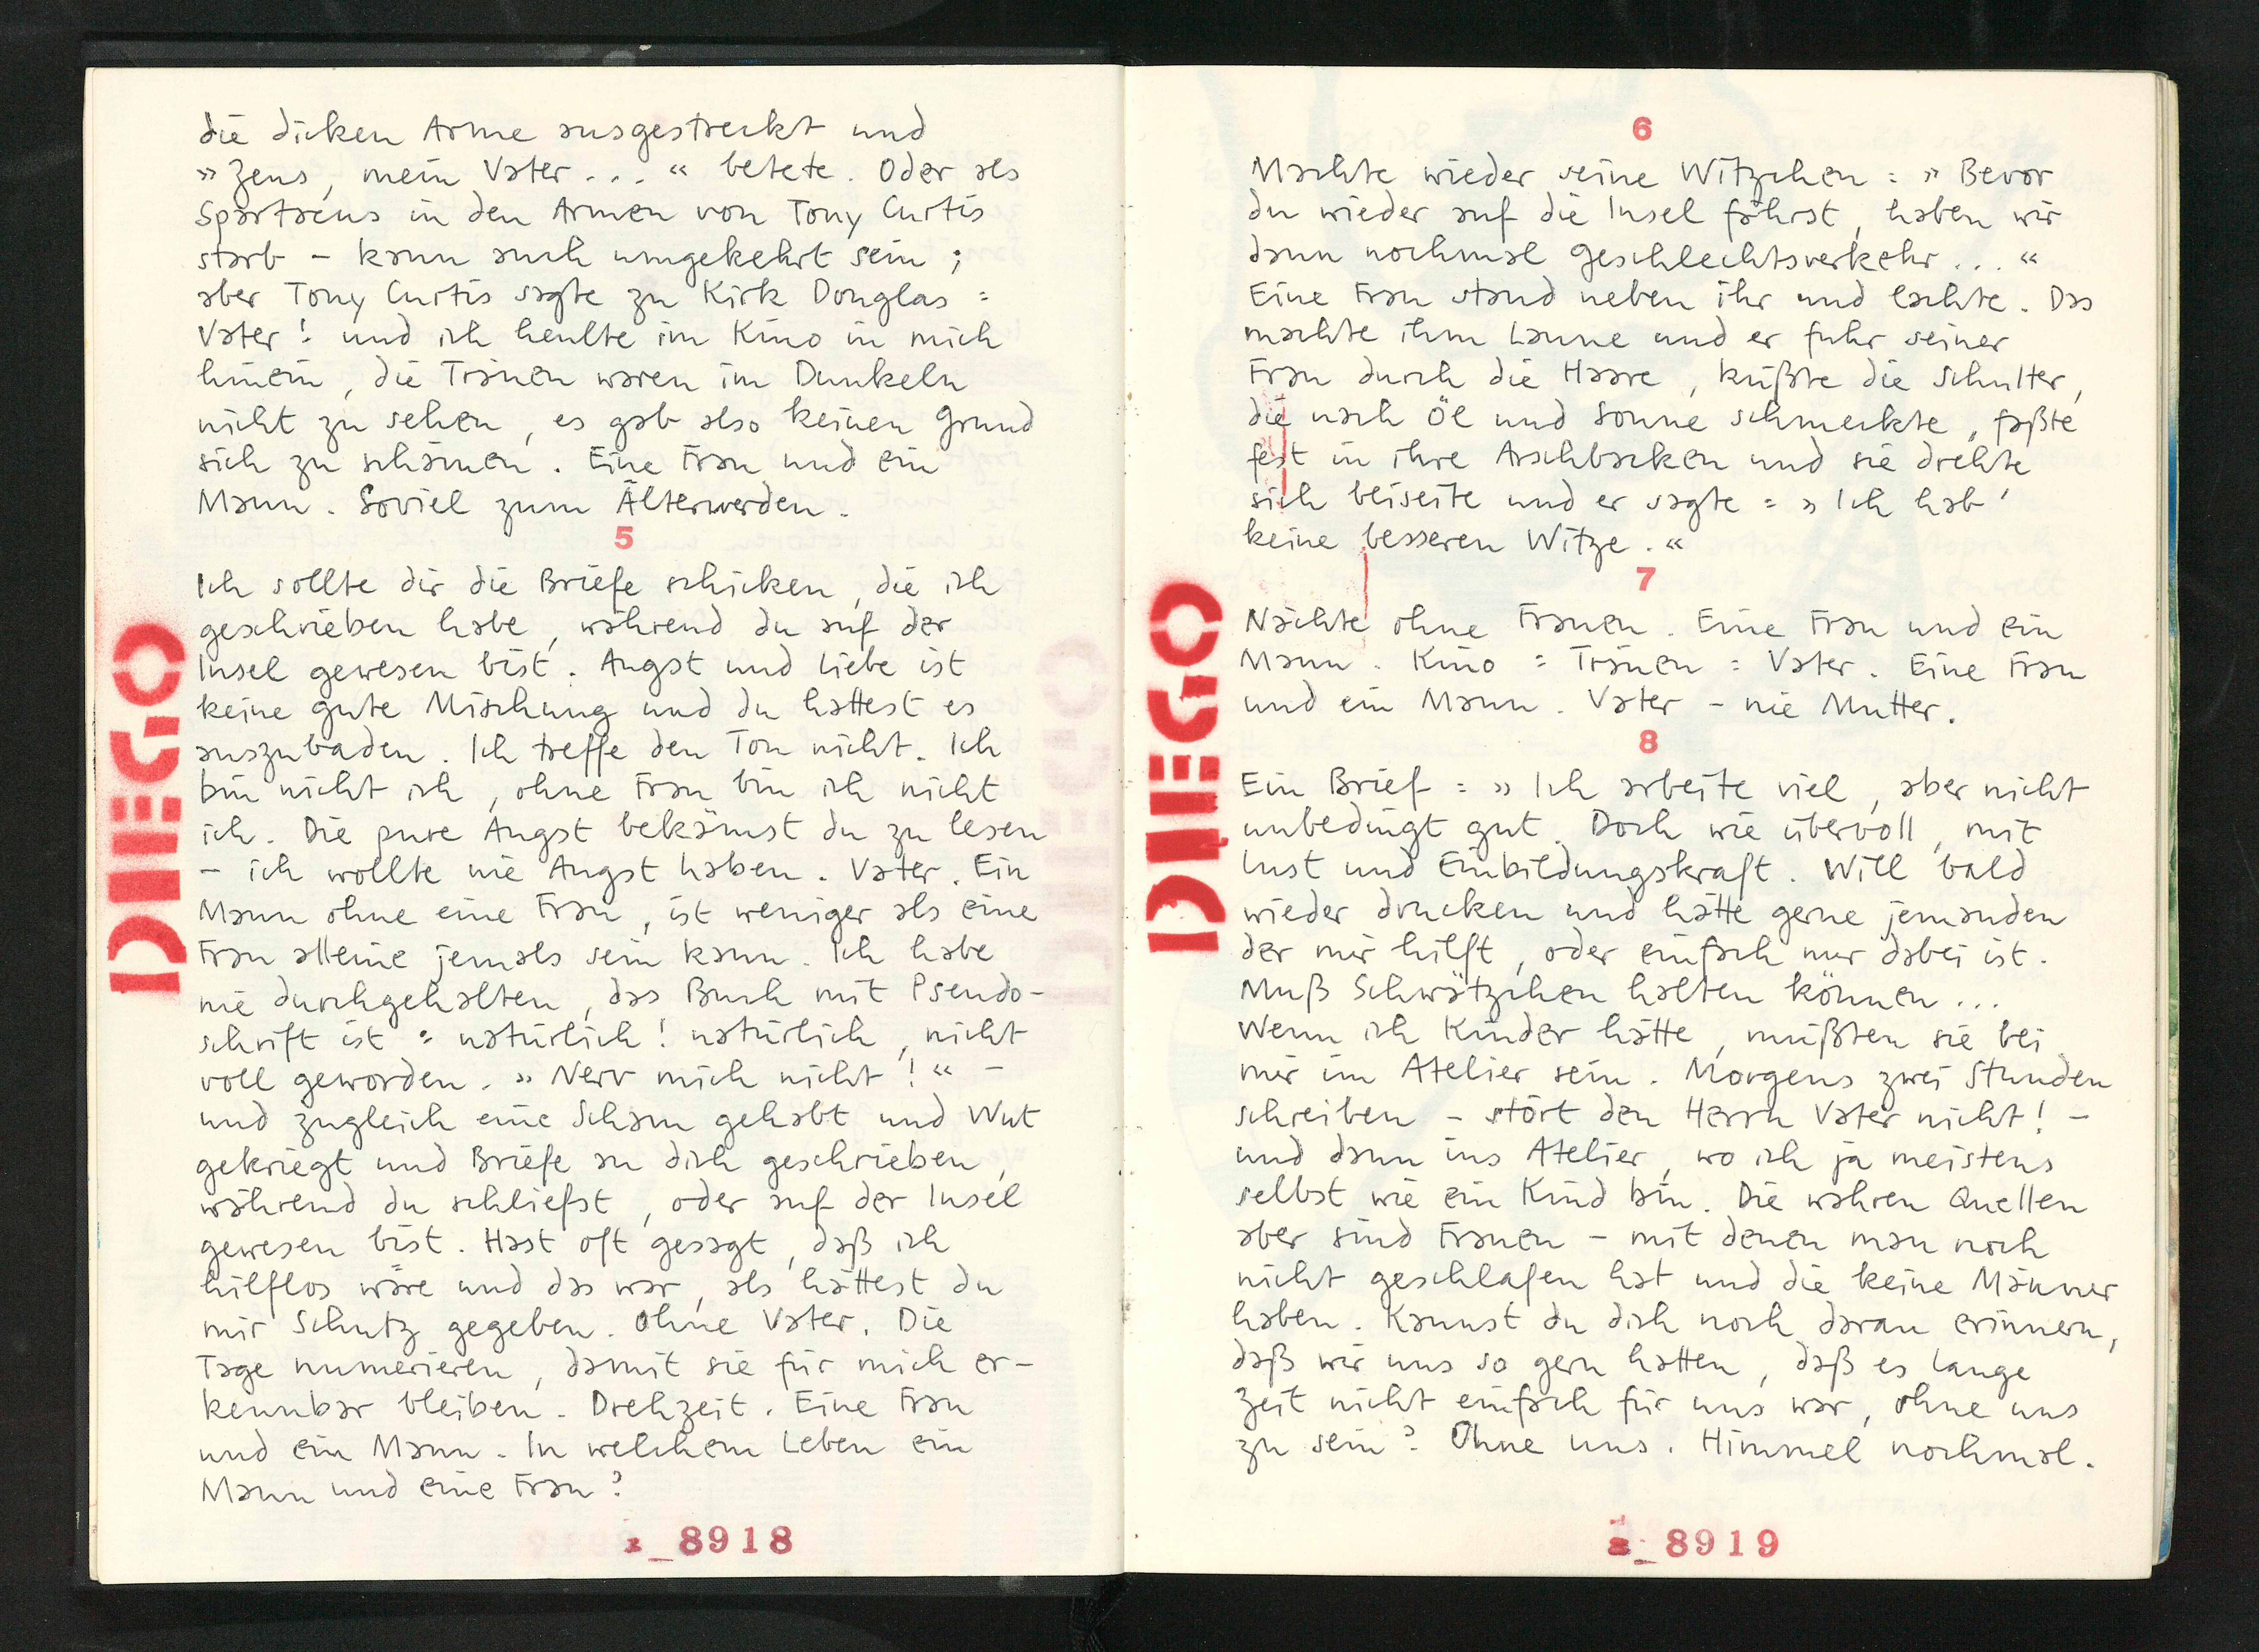 die dicken Arme ausgestreckt und
»Zeus, mein Vater...« betete. Oder als
Spartacus in den Armen von Tony Curtis
starb – kann auch umgekehrt sein;
aber Tony Curtis sagte zu Kirk Douglas:
Vater! und ich heulte im Kino in mich
hinein, die Tränen waren im Dunkeln
nicht zu sehen, es gab also keinen Grund
sich zu schämen. Eine Frau und ein
Mann. Soviel zum Älterwerden.
5
Ich sollte dir die Briefe schicken, die ich
geschrieben habe, während du auf der
Insel gewesen bist. Angst und Liebe ist
keine gute Mischung und du hattest es
auszubaden. Ich treffe den Ton nicht. Ich
bin nicht ich, ohne Frau bin ich nicht
ich. Die pure Angst bekämst du zu lesen
– ich wollte nie Angst haben. Vater. Ein
Mann ohne eine Frau, ist weniger als eine
Frau alleine jemals sein kann. Ich habe
nie durchgehalten, das Buch mit Pseudo-
schrift ist: natürlich! natürlich, nicht
voll geworden. »Nerv mich nicht!« –
und zugleich eine Scham gehabt und Wut
gekriegt und Briefe an dich geschrieben,
während du schliefst, oder auf der Insel
gewesen bist. Hast oft gesagt, daß ich
hilflos wäre und das war, als hättest du
mir Schutz gegeben. Ohne Vater. Die
Tage numerieren, damit sie für mich er-
kennbar bleiben. Drehzeit. Eine Frau
und ein Mann. In welchem Leben ein
Mann und eine Frau?
DIEGO
_8918
6
Machte wieder seine Witzchen: »Bevor
du wieder auf die Insel fährst, haben wir
dann nochmal Geschlechtsverkehr...«
Eine Frau stand neben ihr und lachte. Das
machte ihm Laune und er fuhr seiner
Frau durch die Haare, küßte die Schulter,
die nach Öl und Sonne schmeckte, faßte
fest in ihre Arschbacken und sie drehte
sich beiseite und er sagte: »Ich hab'
keine besseren Witze.«
7
Nächte ohne Frauen. Eine Frau und ein
Mann. Kino: Tränen: Vater. Eine Frau
und ein Mann. Vater – nie Mutter.
8
Ein Brief: »Ich arbeite viel, aber nicht
unbedingt gut. Doch wie übervoll, mit
Lust und Einbildungskraft. Will bald
wieder drucken und hätte gerne jemanden
der mir hilft, oder einfach nur dabei ist.
Muß Schwätzchen halten können...
Wenn ich Kinder hätte, müßten sie bei
mir im Atelier sein. Morgens zwei Stunden
schreiben – stört den Herrn Vater nicht! –
und dann ins Atelier, wo ich ja meistens
selbst wie ein Kind bin. Die wahren Quellen
aber sind Frauen – mit denen man noch
nicht geschlafen hat und die keine Männer
haben. Kannst du dich noch daran erinnern,
daß wir uns so gern hatten, daß es lange
Zeit nicht einfach für uns war, ohne uns
zu sein? Ohne uns. Himmel nochmal.
DIEGO
_8919